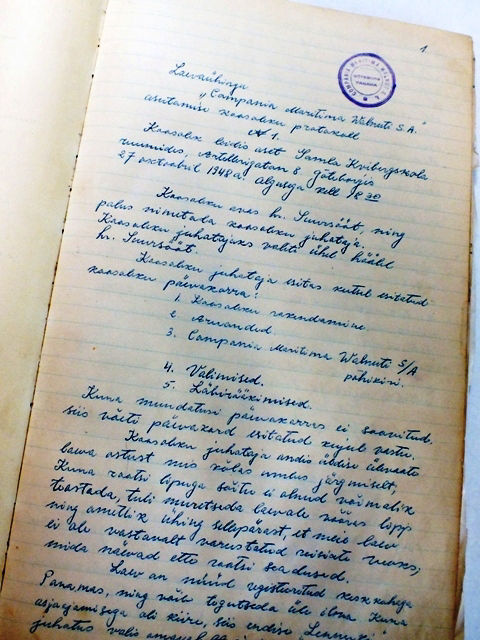 1
COMPANIA MARITIMA WALNUTI S.A.
GÖTEBORG
PANAMA
Laevaühingu
"Compania Maritima Walnuti S.A."
asutamise koosoleku protokoll
№ 1.
Koosolek leidis aset Samla Kvibergskola
ruumides, Artillerigatan 8 göteborgis
27 octoobril 1948 a. Algusega kell 18 30
Koosoleku avas hr. Suursööt, ning
palus nimetada koosoleku juhataja.
Koosoleku juhatajaks valiti ühel häälel
hr. Suursööt.
Koosoleku juhataja esitas kutsel esitatud
koosoleku päevakorra:
1. Koosoleku rakendamine
2. Aruanded
3. Compania Maritima Walnuti S/A
põhikiri.
4. Valimised.
5. Läbirääkimised.
Kuna muudatusi päevakorras ei soovitud,
siis võeti päevakord esitatud kujul vastu.
Koosoleku juhataja andis üldise ülevaate
laeva ostust mis kõlas umbes järgmiselt,
Kuna rootsi lipuga sõitu ei olnud võimalik
teostada, tuli muretseda laevale võõras lipp
ning ametlik ühing sellepärast, et meie laev
ei ole vastavalt varustatud reisiate veoks,
mida näevad ette rootsi seadused.
Laev on nüüd registreeritud keskkohaga
Panamas, ning võib tegutseda üle ilma. Kuna
asjaajamisega oli kiire, siis endise
juhatus valis